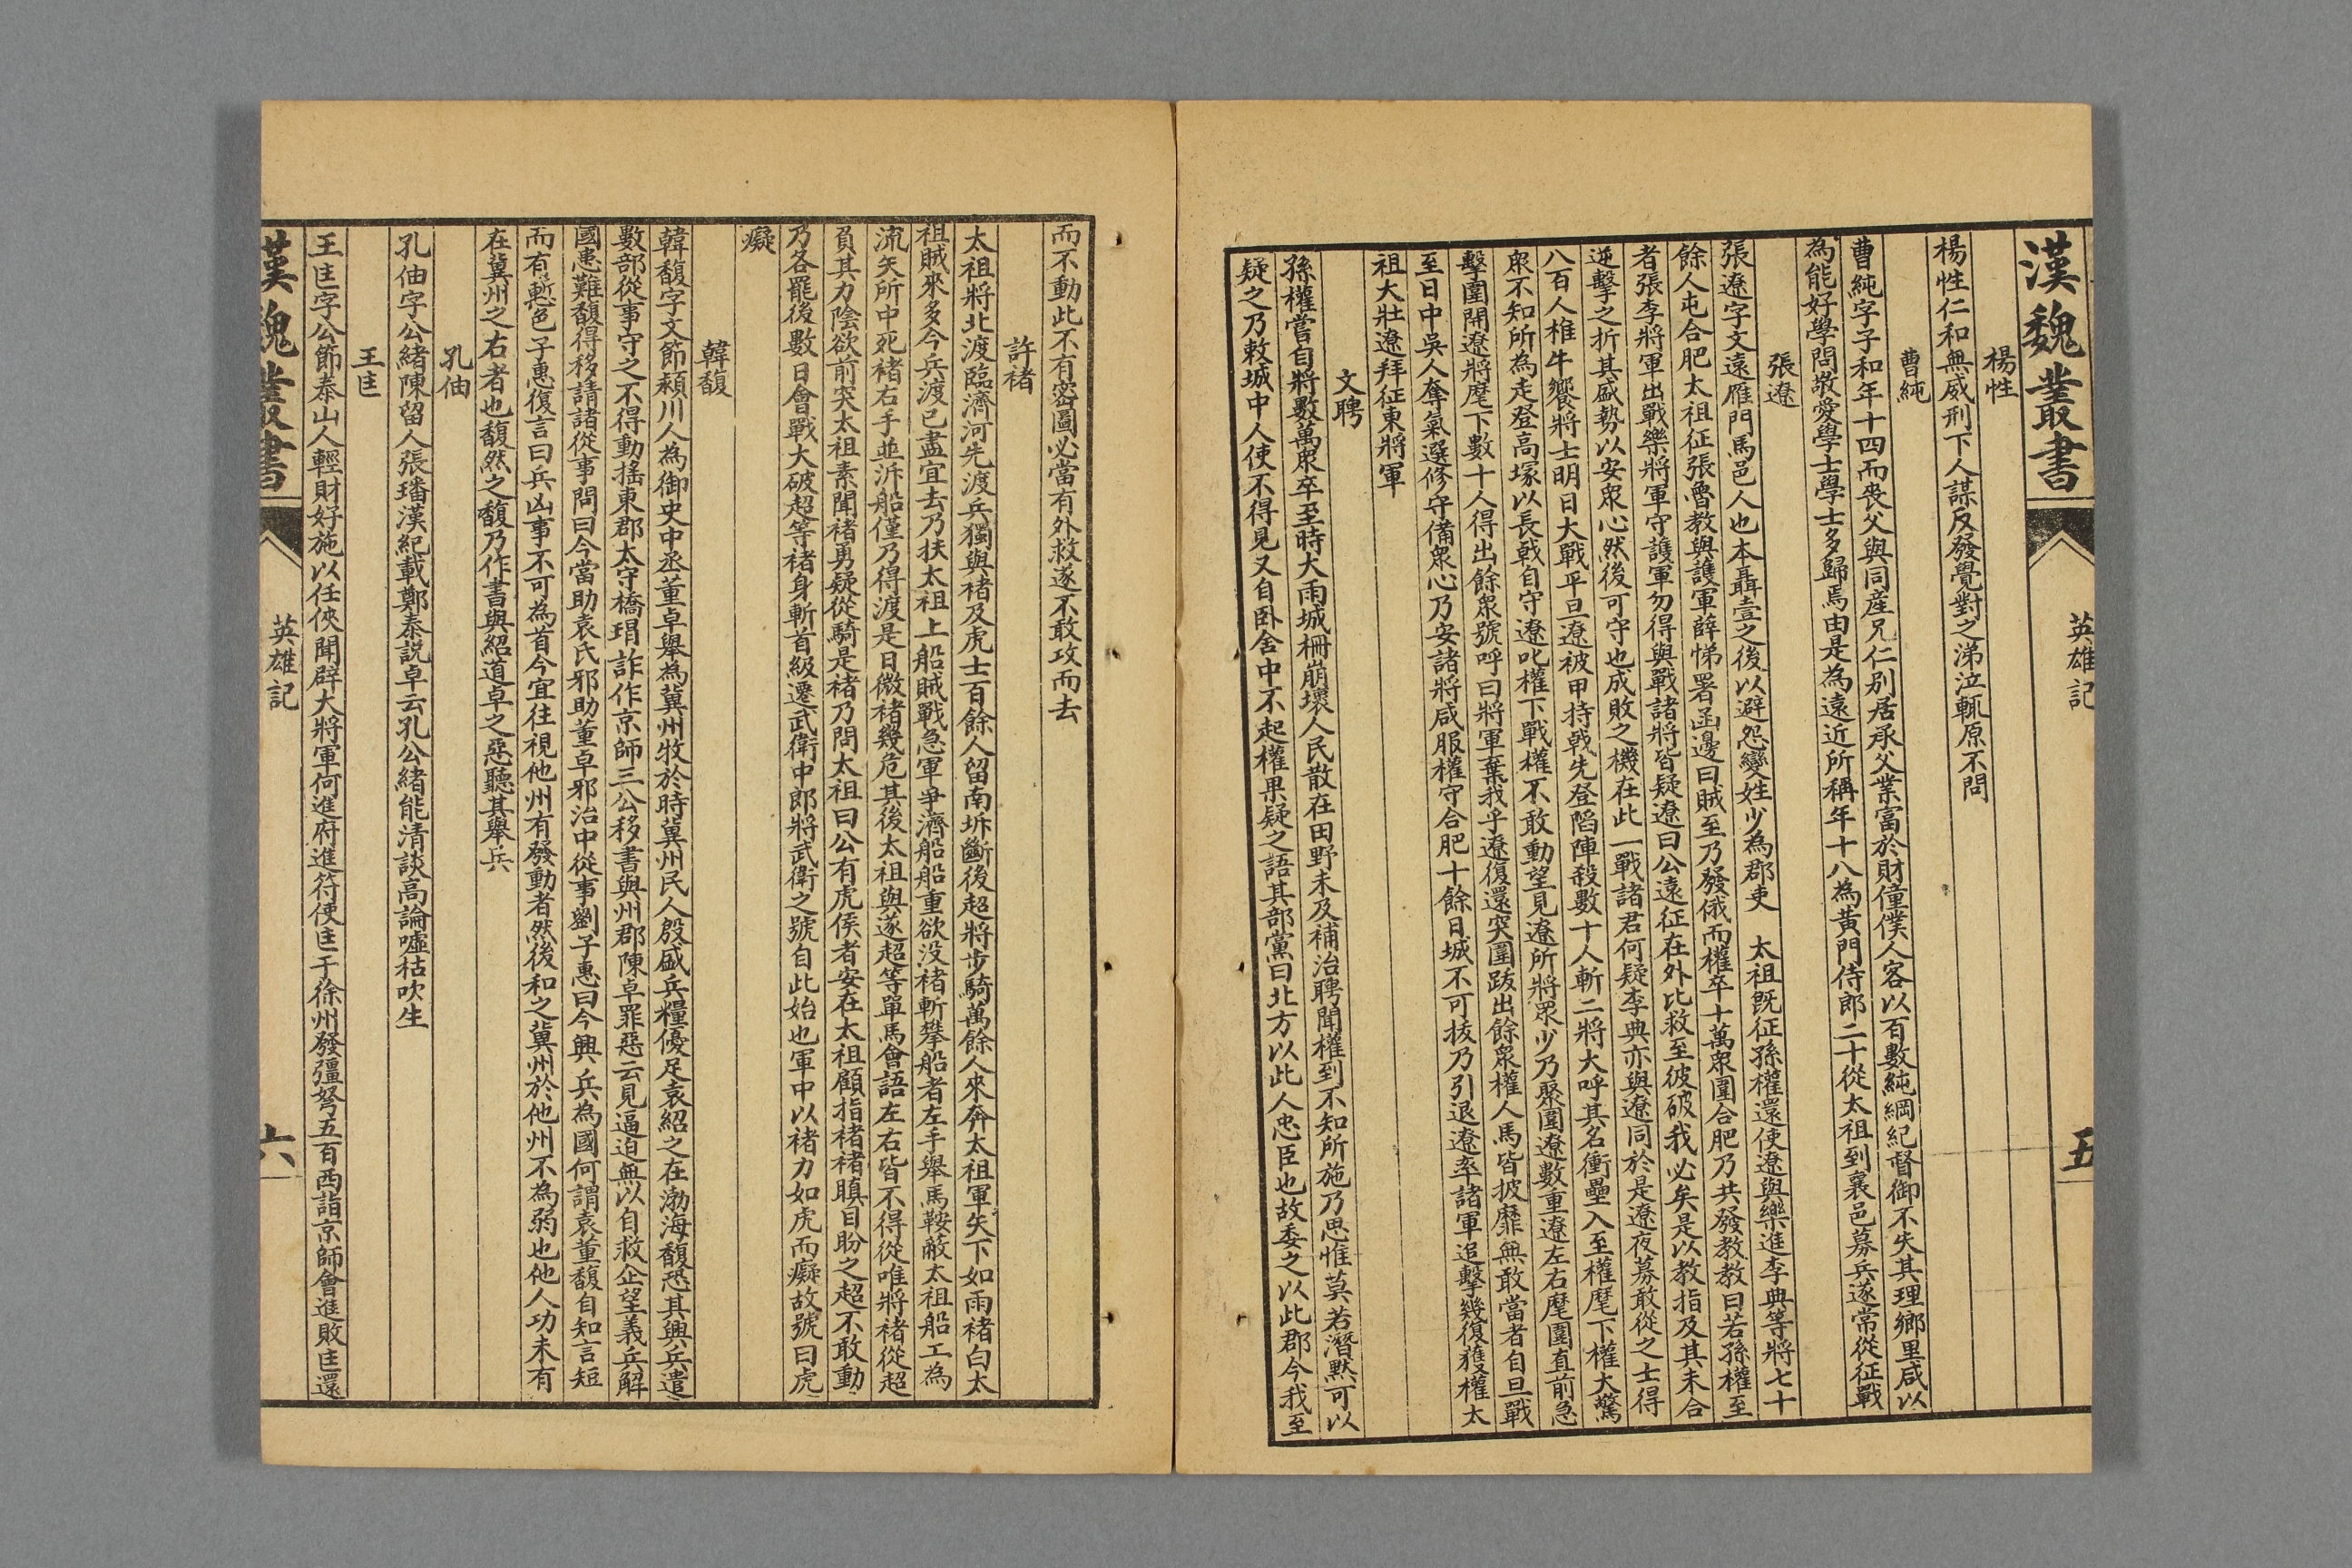 漢魏叢書
英雄記
五
楊性
楊性仁和無威刑下人謀反發覺對之涕泣輒原不問
曹純
曹純字子和年十四而喪父與同産兄仁别居承父業富於財僮僕人客以百數純綱紀督御不失其理鄉里咸以
為能好學問敬愛學士學士多歸焉由是為遠近所稱年十八為黄門侍郎二十從太祖到襄邑募兵遂常從征戰
張遼
張遼字文遠雁門馬邑人也本聶壹之後以避怨變姓少為郡吏 太祖既征孫權還使遼與樂進李典等將七十
餘人屯合肥太祖征張魯教與護軍薛悌署函邊曰賊至乃發俄而權卒十萬衆圍合肥乃共發教教曰若孫權至
者張李將軍出戰樂將軍守護軍勿得與戰諸將皆疑遼曰公遠征在外比救至彼破我必矣是以教指及其未合
逆擊之折其盛勢以安衆心然後可守也成敗之機在此一戰諸君何疑李典亦與遼同於是遼夜募敢從之士得
八百人椎牛饗將士明日大戰平旦遼被甲持戟先登陷陣殺數十人斬二將大呼其名衝壘入至權麾下權大驚
衆不知所為走登高塚以長戟自守遼叱權下戰權不敢動望見遼所將眾少乃聚圍遼數重遼左右麾圍直前急
擊圍開遼將麾下數十人得出餘衆號呼曰將軍棄我乎遼復還突圍跋出餘衆權人馬皆披靡無敢當者自旦戰
至日中吳人奪氣還修守備眾心乃安諸將咸服權守合肥十餘日城不可拔乃引退遼率諸軍追擊幾復獲權太
祖大壯遼拜征東將軍
文聘
孫權嘗自將數萬衆卒至時大雨城柵崩壞人民散在田野未及補治聘聞權到不知所施乃思惟莫若潛默可以
疑之乃敕城中人使不得見又自卧舍中不起權果疑之語其部黨曰北方以此人忠臣也故委之以此郡今我至
而不動此不有密圖必當有外救遂不敢攻而去
許褚
太祖將北渡臨濟河先渡兵獨與褚及虎士百餘人留南坼斷後超將步騎萬餘人來奔太祖軍矢下如雨褚白太
祖賊來多今兵渡已盡宜去乃扶太祖上船賊戰急軍爭濟船船重欲没褚斬攀船者左手舉馬鞍蔽太祖船工為
流矢所中死褚右手並泝船僅乃得渡是日微褚幾危其後太祖與遂超等單馬會語左右皆不得從唯將褚從超
負其力陰欲前突太祖素聞褚勇疑從騎是褚乃問太祖曰公有虎侯者安在太祖顧指褚褚瞋目盼之超不敢動
乃各罷後數日會戰大破超等褚身斬首級遷武衛中郎將武衛之號自此始也軍中以褚力如虎而癡故號曰虎
癡
韓馥
韓馥字文節潁川人為御史中丞董卓舉為冀州牧於時冀州民人殷盛兵糧優足袁紹之在渤海馥恐其興兵遣
數部從事守之不得動搖東郡太守橋瑁詐作京師三公移書與州郡陳卓罪惡云見逼迫無以自救企望義兵解
國患難馥得移請諸從事問曰今當助袁氏邪助董卓邪治中從事劉子惠曰今興兵為國何謂袁董馥自知言短
而有慙色子惠復言曰兵凶事不可為首今宜往視他州有發動者然後和之冀州於他州不為弱也他人功未有
在冀州之右者也馥然之馥乃作書與紹道卓之惡聽其舉兵
孔伷
孔伷字公緒陳留人張璠漢紀載鄭泰説卓云孔公緒能清談高論噓枯吹生
王匡
王匡字公節泰山人輕財好施以任俠聞辟大將軍何進府進符使匡于徐州發彊弩五百西詣京師會進敗匡還
漢魏叢書
英雄記
六